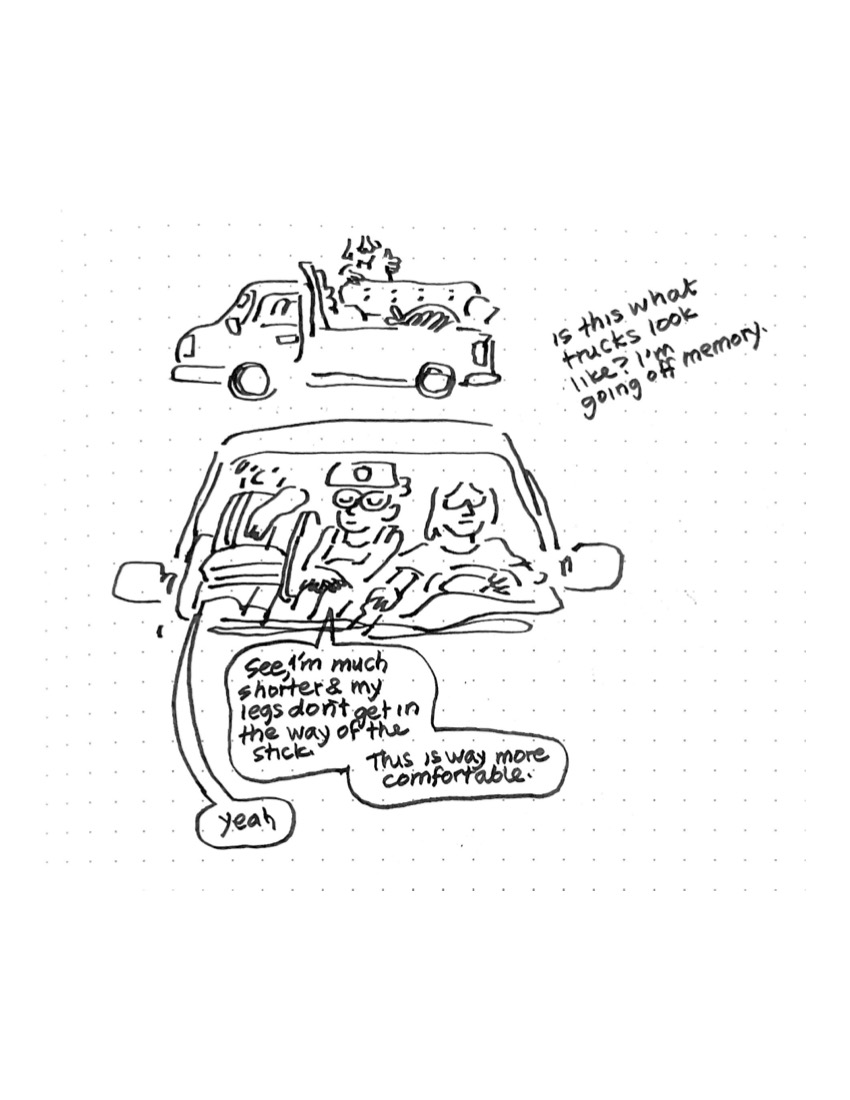 is this what
trucks look
like? I'm
going off memory.
See, I'm much
shorter & my
legs don't get in
the way of the
stick.
This is way more
comfortable.
yeah